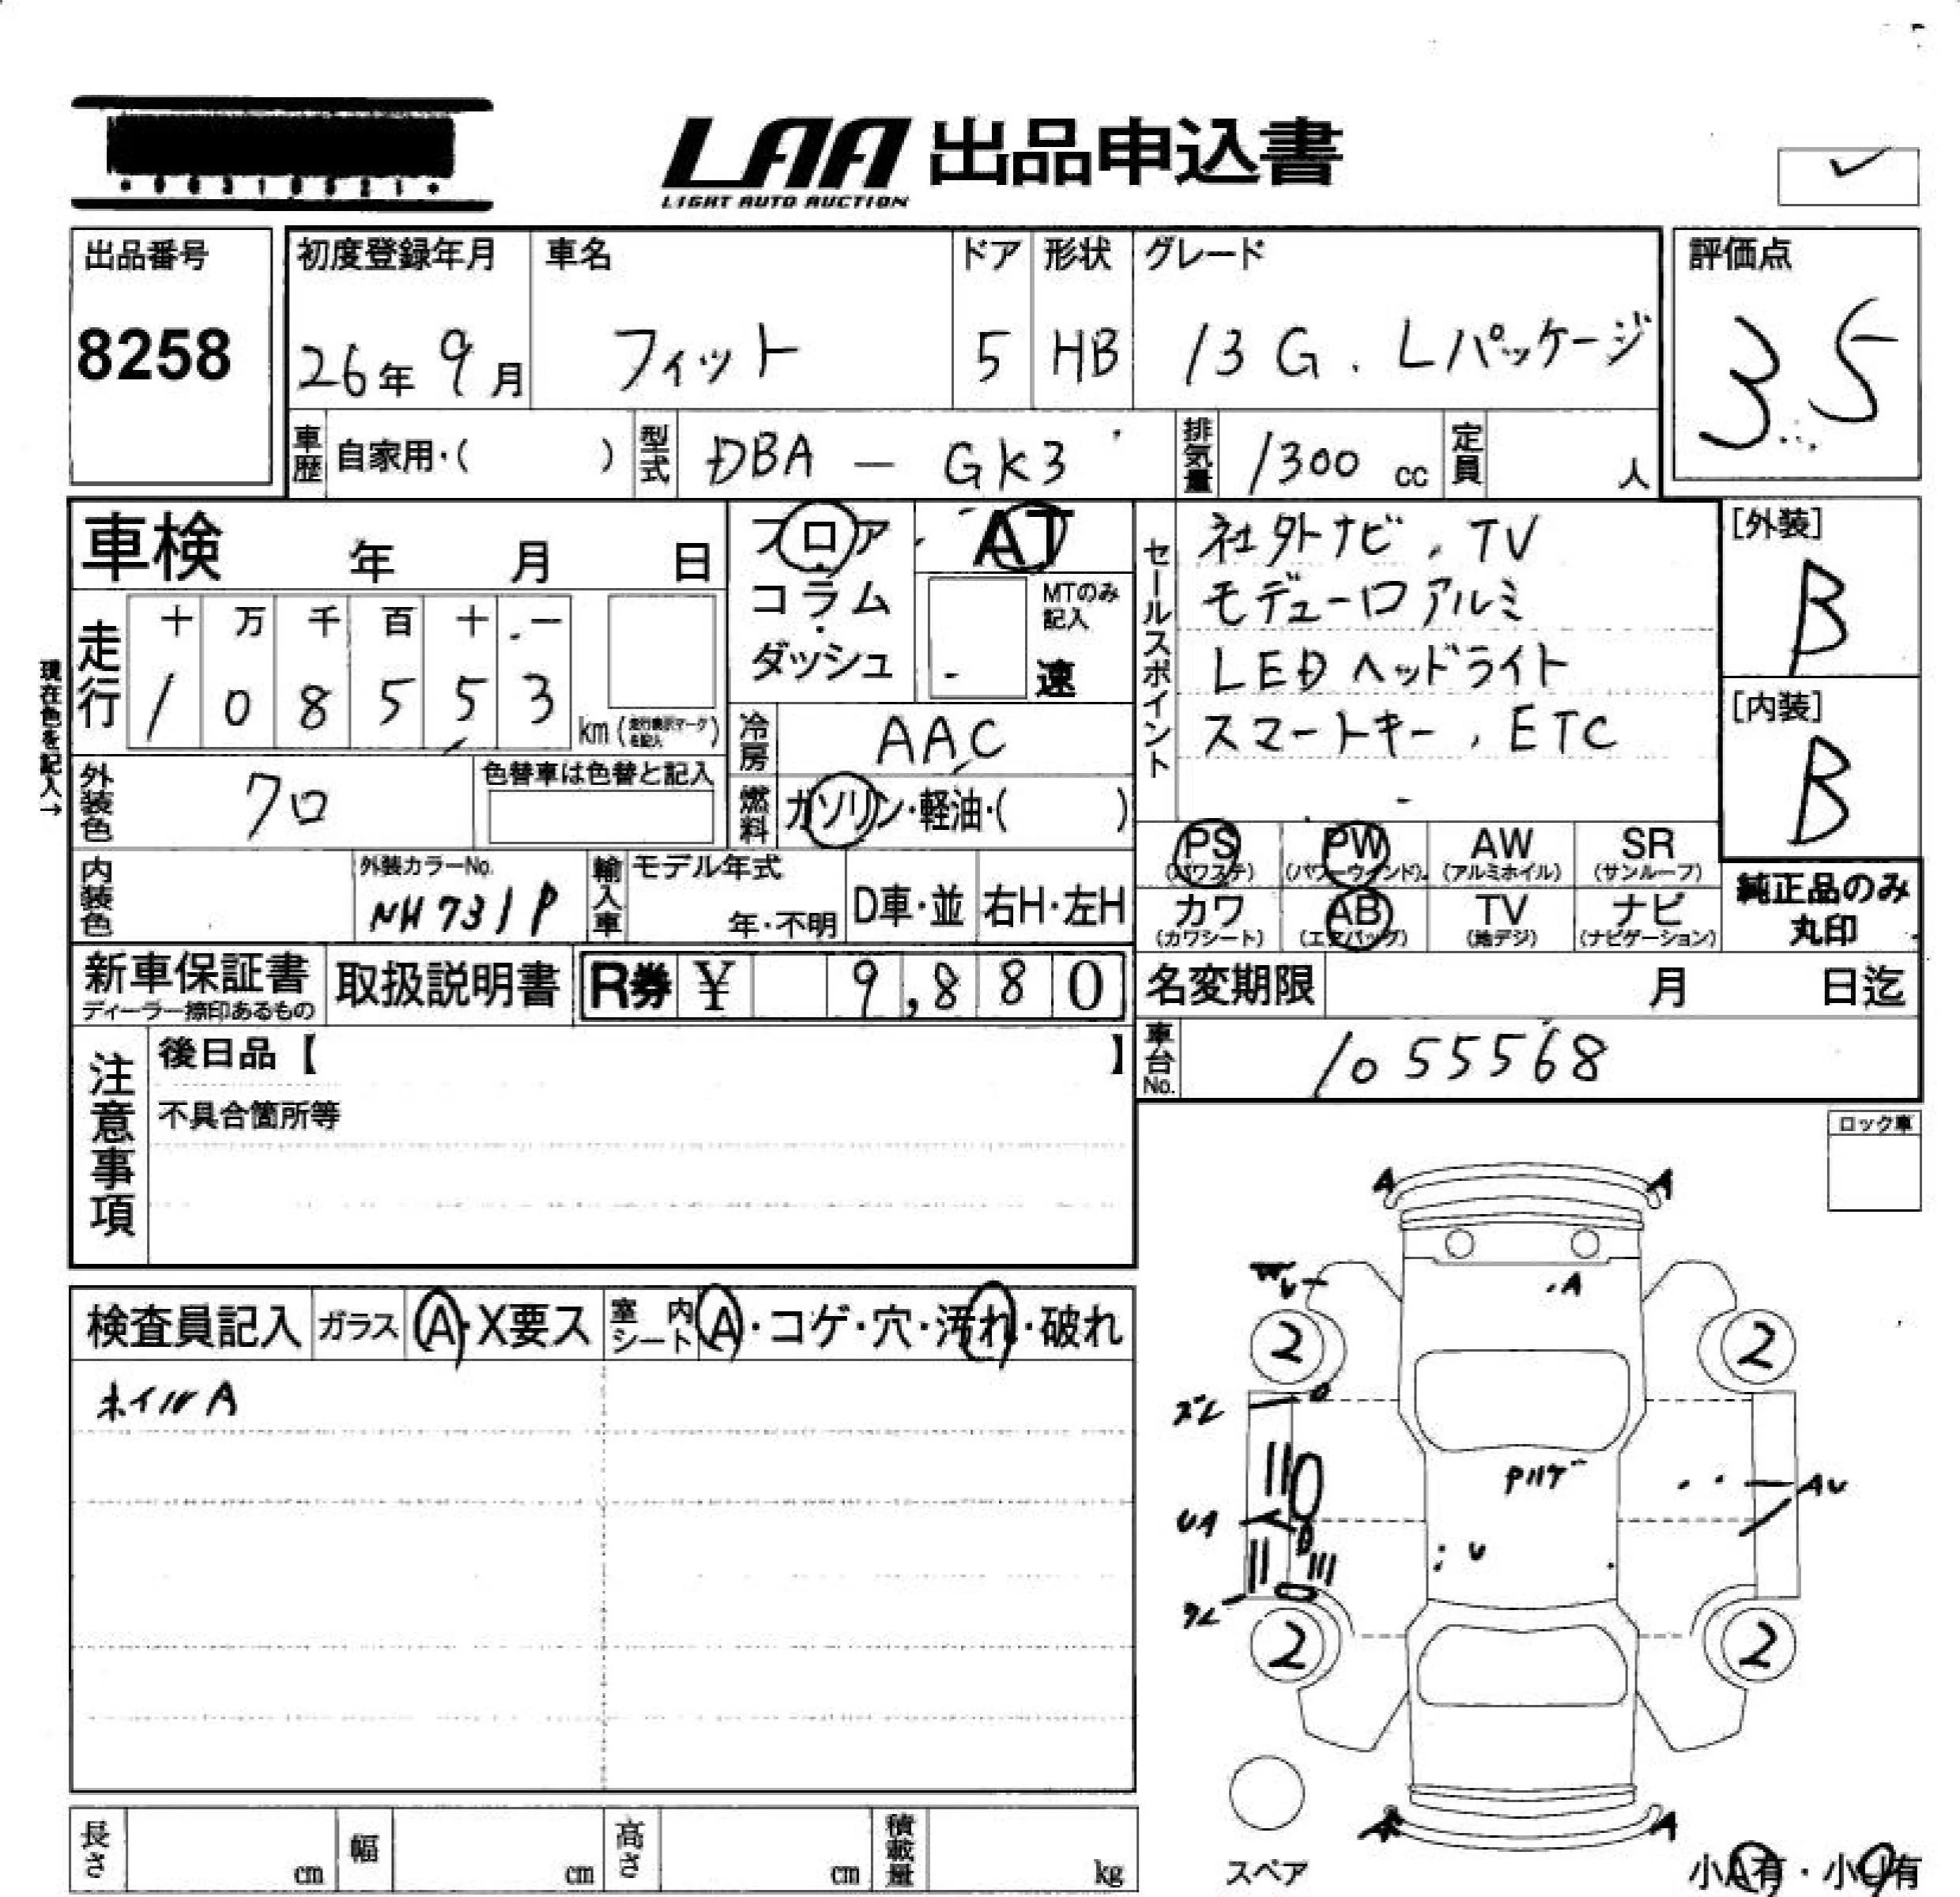 LAA 出品申込書
LIGHT AUTO AUCTION
出品番号
8258
初度登録年月
26年 9月
車名
フィット
ドア
5
形状
HB
グレード
13G. Lパッケージ
評価点
3.5
車歴 自家用・( )
型式 DBA - GK3
排気量 1300 cc
定員 人
車検 年 月 日
フロア
コラム
・
ダッシュ
AT
MTのみ
記入
速
セールスポイント
社外ナビ, TV
モデューロアルミ
LEDヘッドライト
スマートキー, ETC
[外装]
B
[内装]
B
現在色を記入→
走行
十 万 千 百 十 一
1 0 8 5 5 3
km (走行表示マークを記入)
冷房 AAC
外装色 クロ
色替車は色替と記入
燃料 ガソリン・軽油・( )
PS
(パワステ)
PW
(パワーウインド)
AW
(アルミホイル)
SR
(サンルーフ)
内装色
外装カラーNo.
NH731P
輸入車
モデル年式
年・不明
D車・並
右H・左H
カワ
(カワシート)
AB
(エアバッグ)
TV
(地デジ)
ナビ
(ナビゲーション)
純正品のみ
丸印
新車保証書
ディーラー捺印あるもの
取扱説明書
R券 ¥ 9,880
名変期限 月 日迄
車台No. 1055568
注意事項
後日品【 】
不具合箇所等
ロック車
検査員記入
ガラス A・X要ス
室内シート A・コゲ・穴・汚れ・破れ
ホイルA
A A
A
2 2
AU
UA
U
2 2
A A
スペア
長さ cm
幅 cm
高さ cm
積載量 kg
小A有・小U有